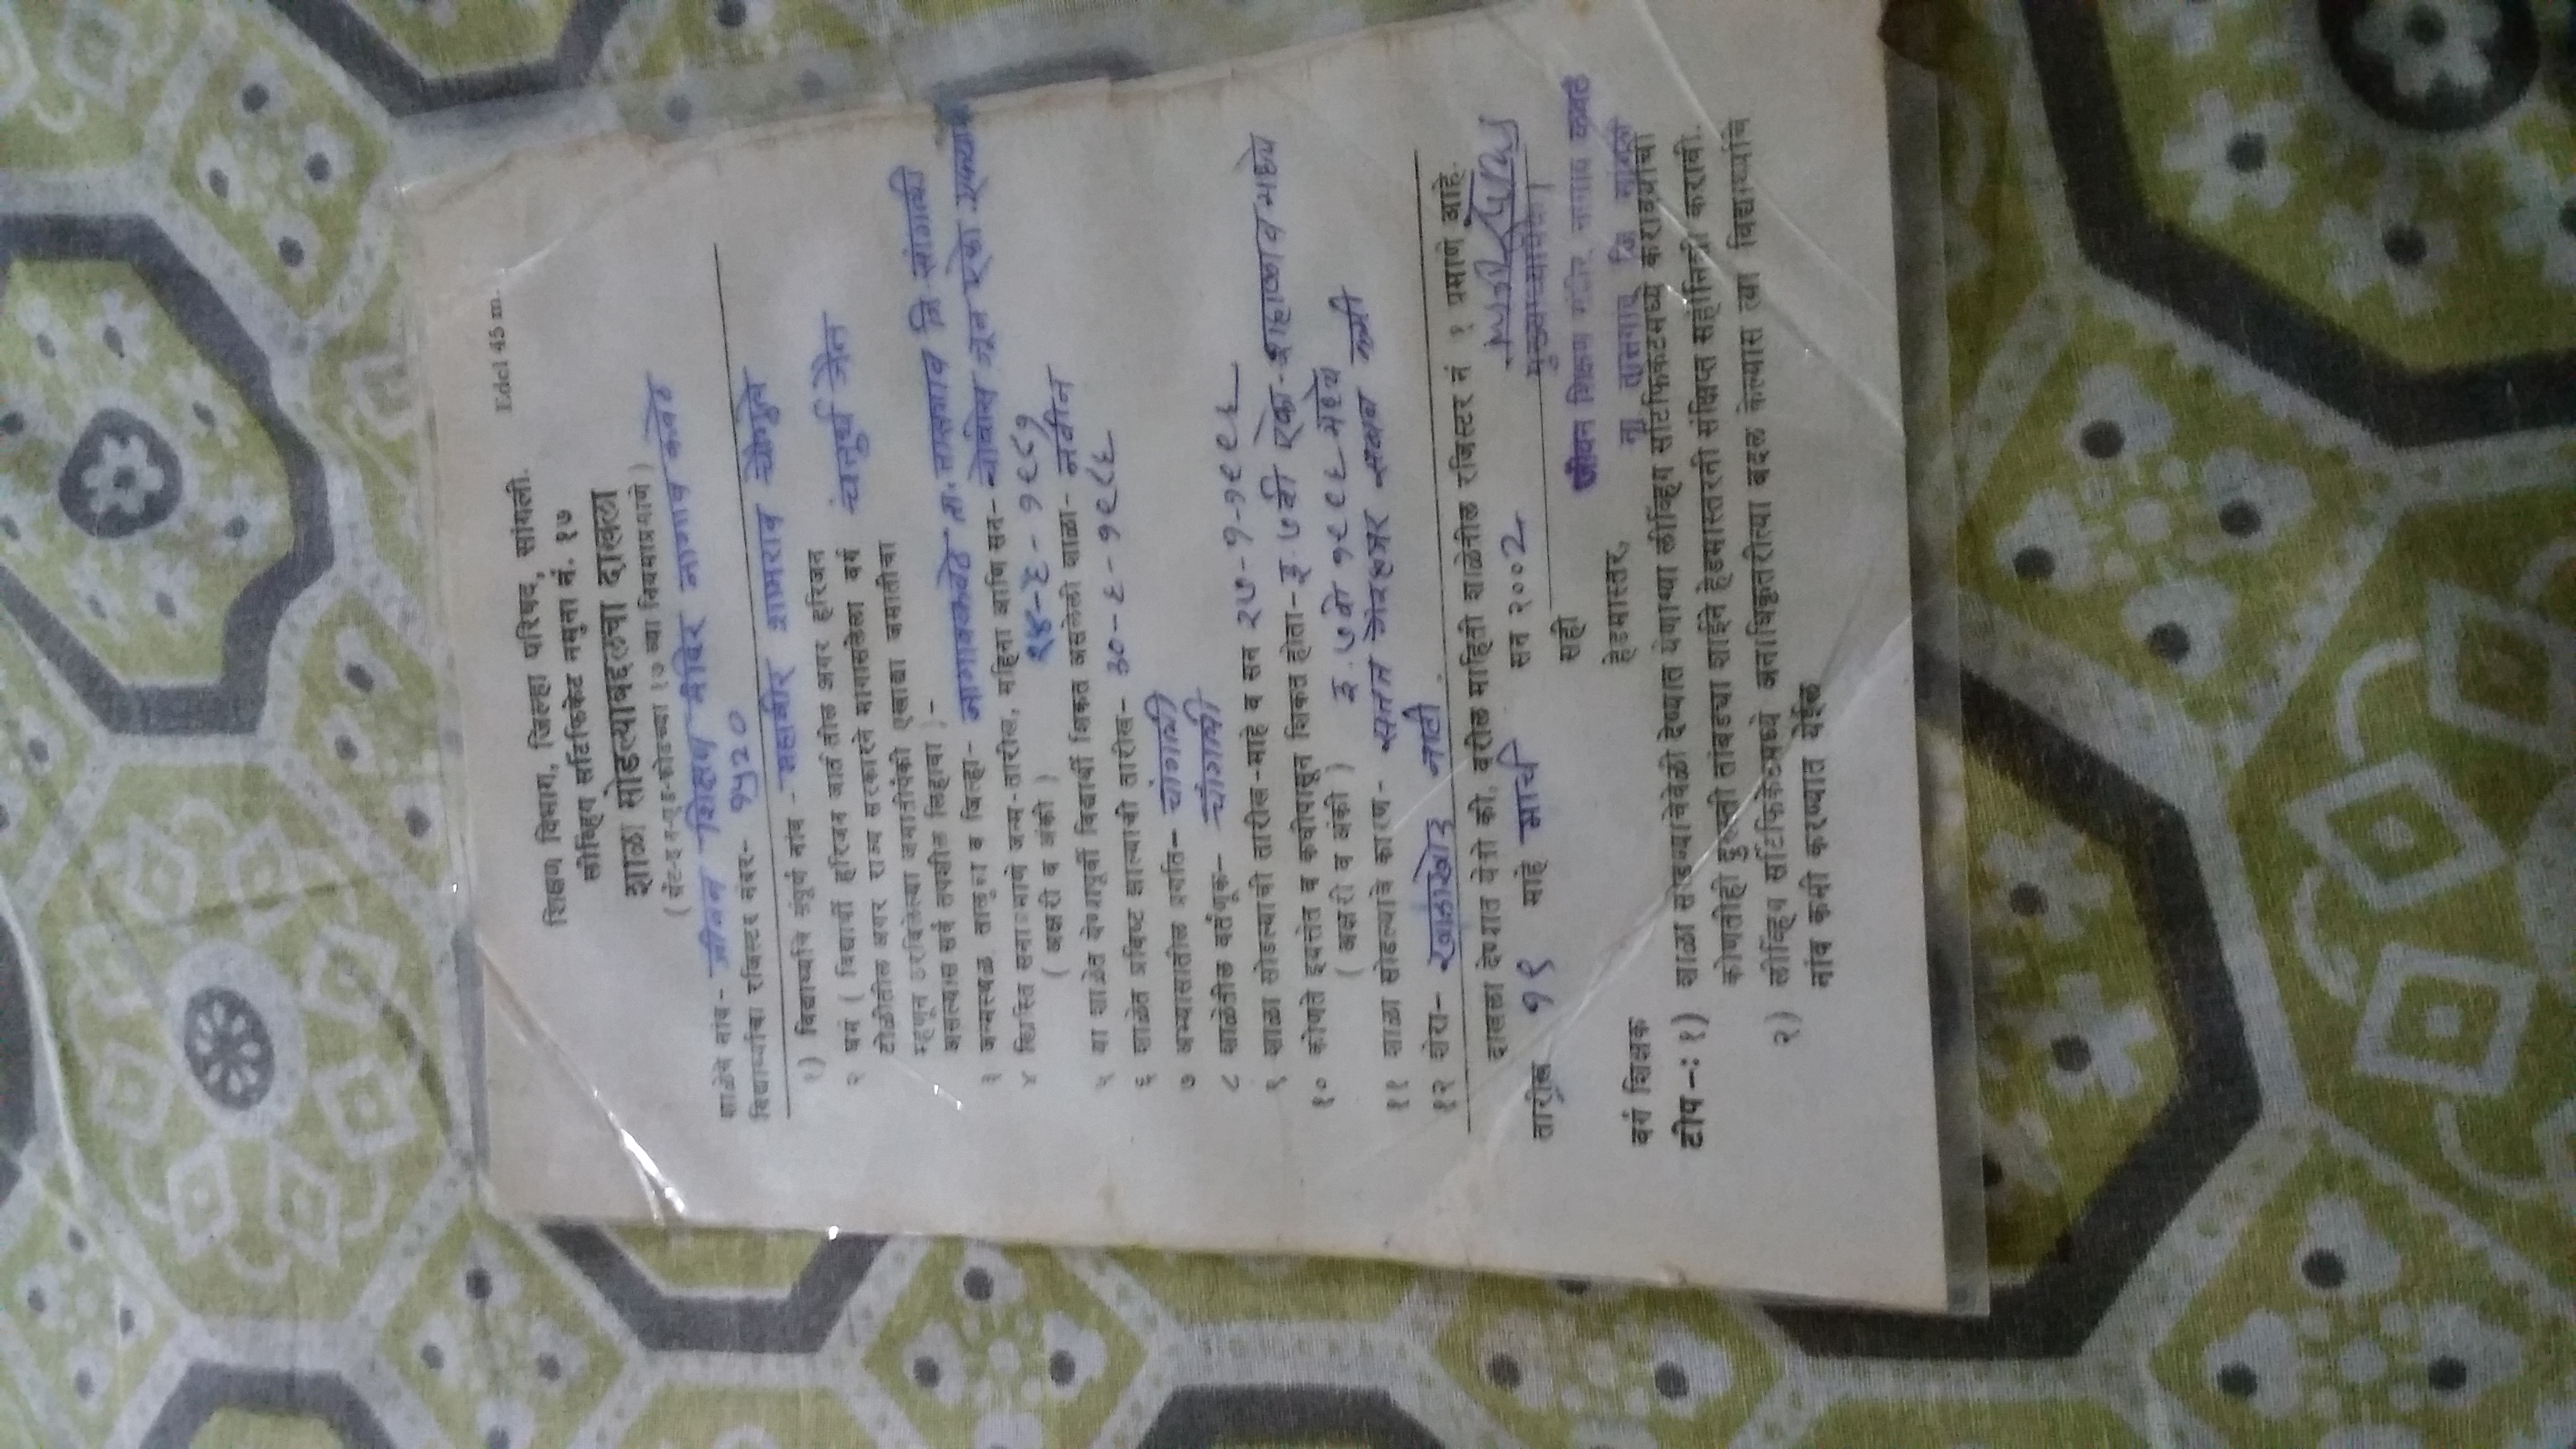 Edcl 45 m.
शिक्षण विभाग, जिल्हा परिषद, सांगली.
लीव्हिंग सर्टिफिकेट नमुना नं. १७
शाळा सोडल्याबद्दलचा दाखला
( ग्रँट-इन-एड-कोडच्या १७ व्या नियमाप्रमाणे )
शाळेचे नांव- जीवन शिक्षण मंदिर नागाव कवठे
विद्यार्थ्याचा रजिस्टर नंबर- १५२०
१) विद्यार्थ्याचे संपूर्ण नांव - महावीर शामराव
२ धर्म ( विद्यार्थी हरिजन जातीतील अगर हरिजन
टोळीतील अगर राज्य सरकारने मागासलेला वर्ग चतुर्थ जैन
म्हणून ठरविलेल्या जमातीपैकी एखाद्या जमातीचा
असल्यास सर्व तपशील लिहावा ) -
३ जन्मस्थळ तालुका व जिल्हा- नागावकवठे ता. तासगाव जि सांगली
४ ख्रिस्ति सनाप्रमाणे जन्म-तारीख, महिना आणि सन-
( अक्षरी व अंकी ) १४-६-१९८१
५ या शाळेत येण्यापूर्वी विद्यार्थी शिकत असलेली शाळा- नवीन
६ शाळेत प्रविष्ट झाल्याची तारीख- ३०-६-१९८६
७ अभ्यासातील प्रगति- चांगली
८ शाळेतील वर्तणूक- चांगली
९ शाळा सोडल्याची तारीख-माहे व सन २७-१-१९९६
१० कोणते इयत्तेत व कधीपासून शिकत होता- इ. ७ वी
( अक्षरी व अंकी ) इ. ७ वी १९९६ मध्ये
११ शाळा सोडल्याचे कारण- सतत गैरहजर सबब कमी
१२ शेरा- खाडाखोड नाही
दाखला देण्यात येतो की, वरील माहिती शाळेतील रजिस्टर नं १ प्रमाणे आहे.
तारीख १९ माहे मार्च सन २००२
मुख्याध्यापक
सही जीवन शिक्षण मंदिर, नागाव कवठे
वर्ग शिक्षक हेडमास्तर, ता तासगाव जि सांगली
टीप-: १) शाळा सोडण्याचेवेळी देण्यात येणाऱ्या लीव्हिंग सर्टिफिकेटमध्ये करावयाची
कोणतीही दुरुस्ती तांबड्या शाईने हेडमास्तरनी संक्षिप्त सहीनिशी करावी.
२) लीव्हिंग सर्टिफिकेटमध्ये अनाधिकृतरीत्या बदल केल्यास त्या विद्यार्थ्याचे
नांव कमी करण्यात येईल